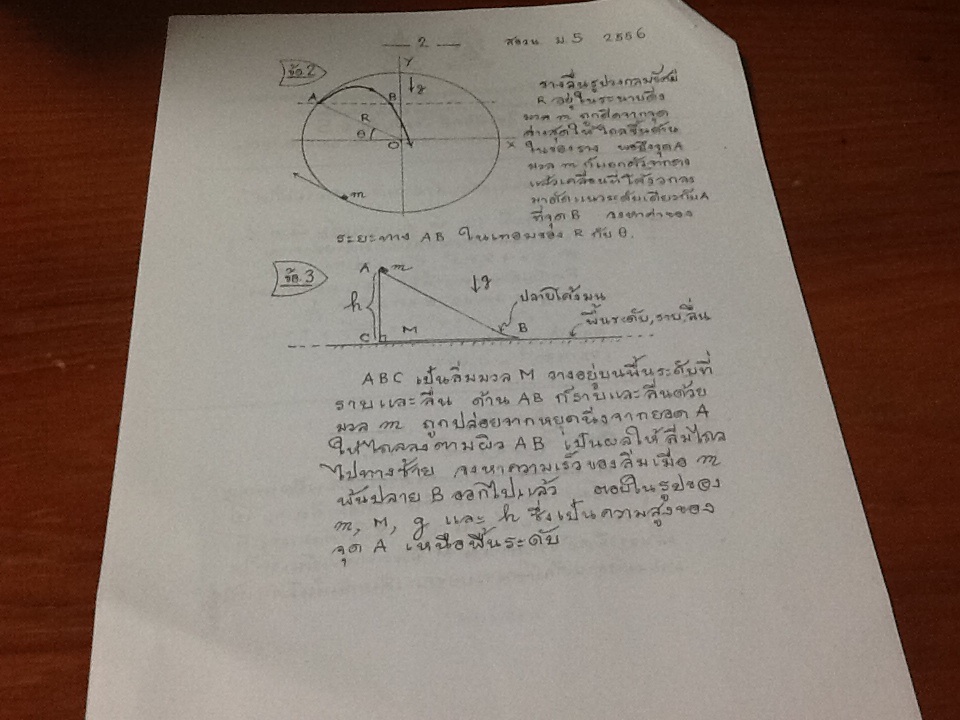 — 2 —
สอวน ม.5 2556
ข้อ.2
Y
g
A
B
R
θ
O
X
m
รางลื่นรูปวงกลมรัศมี
R อยู่ในระนาบดิ่ง
มวล m ถูกดีดจากจุด
ต่ำสุดให้ไถลขึ้นด้าน
ในของราง พอถึงจุด A
มวล m ก็แยกตัวจากราง
แล้วเคลื่อนที่โค้งวกลง
มาตัดแนวระดับเดียวกับ A
ที่จุด B จงหาค่าของ
ระยะทาง AB ในเทอมของ R กับ θ.
ข้อ.3
A
m
g
h
ปลายโค้งมน
พื้นระดับ,ราบ,ลื่น
C
M
B
ABC เป็นลิ่มมวล M วางอยู่บนพื้นระดับที่
ราบและลื่น ด้าน AB ก็ราบและลื่นด้วย
มวล m ถูกปล่อยจากหยุดนิ่งจากยอด A
ให้ไถลลงตามผิว AB เป็นผลให้ลิ่มไถล
ไปทางซ้าย จงหาความเร็วของลิ่มเมื่อ m
พ้นปลาย B ออกไปแล้ว ตอบในรูปของ
m, M, g และ h ซึ่งเป็นความสูงของ
จุด A เหนือพื้นระดับ